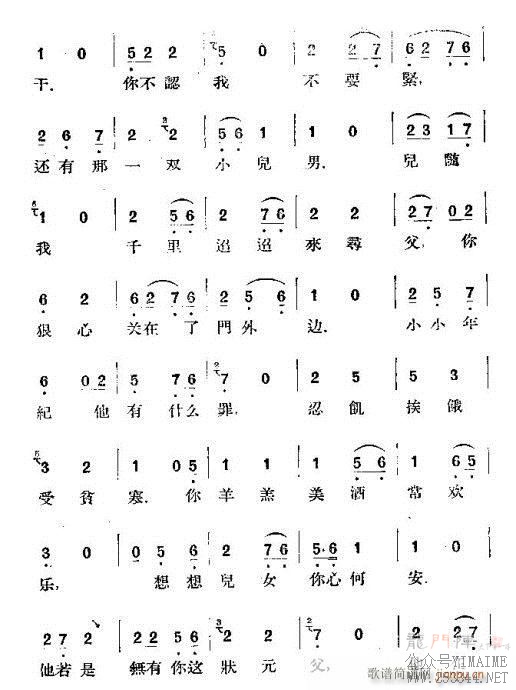 1 0 5 2 2 5 0 2 2 7 6 7 6
干. 你不認 我 不要 緊,
2 6 7 2 2 5 6 1 1 2 3 1 7
还有那 一双 小兒 男. 兒隨
1 0 2 5 6 2 7 6 2 2 7 0 2
我 千里 迢迢 來尋 父, 你
6 2 6 2 7 6 2 5 6 1 0 2 5 7
狠心 关在 了門外 边. 小小年
6 0 2 5 7 6 7 0 2 5 5 3
紀 他 有什么 罪, 忍飢 挨餓
3 2 1 0 5 1 1 1 5 6 1 6 5
受貧 寒. 你 羊羔 美酒 常欢
3 0 5 5 2 7 6 5 6 2 1 0
乐, 想想 兒女 你心何 安.
2 7 2 1 2 2 7 2 2 7 0 2 2 7
他若是 無有你 这狀 元 父,
歌谱简谱网
公众号YIMAIME
www.253944.